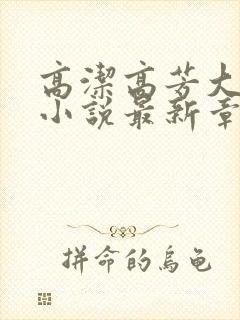 高潔高芳大
小說最新章
拼命的烏龜